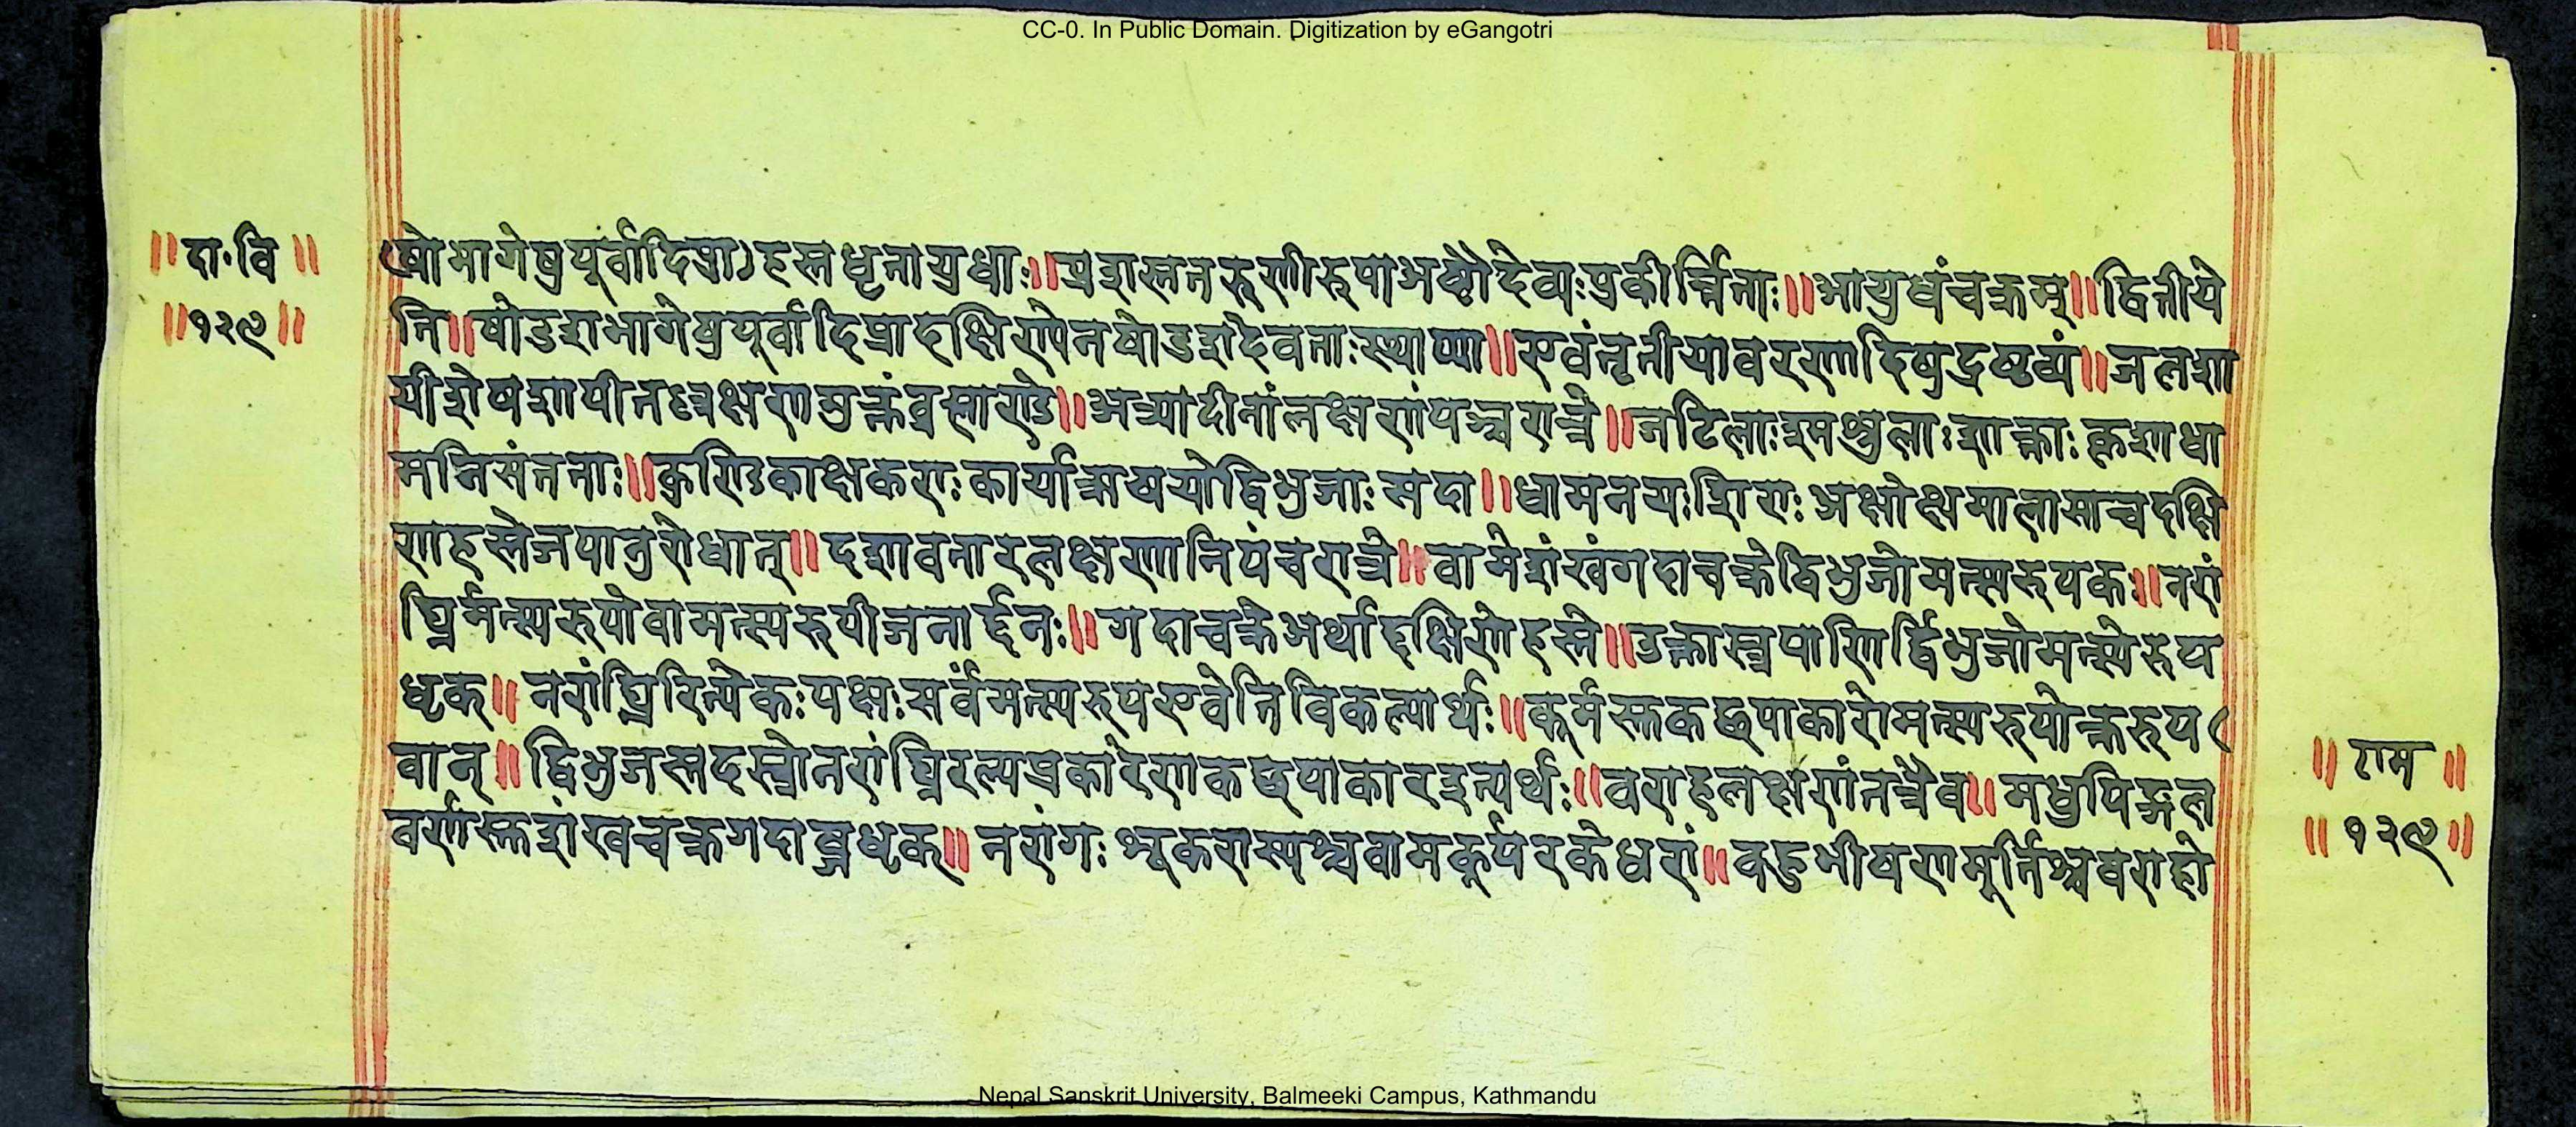 CC-0. In Public Domain. Digitization by eGangotri
॥दा॰वि॥
॥१२९॥
षोभागेषुपूर्वादिषुशहस्तधृतायुधाः॥प्रशस्ततरुणीरुपाअष्टौदेव्यःप्रकीर्त्तिताः॥आयुधंचक्रम्॥द्वितीये
ति॥षोडशभागेषुपूर्वादिप्रादक्षिण्येनषोडशदेवताःस्थाप्या॥एवंतृतीयावरणादिषुद्रष्टव्यं॥जलशा
यीशेषशायीतल्लक्षणमुक्तंब्रह्माण्डे॥अत्र्यादीनांलक्षणंपञ्चरात्रे॥जटिलाःश्मश्रुलाःशान्ताःकृशाधा
मनिसंतताः॥कुण्डिकाक्षकराःकार्याऋषयोद्विभुजाःसदा॥धामनयःशिराःअक्षोक्षमालासाचदक्षि
णहस्तेजपानुरोधात्॥दशावतारलक्षणानिपंचरात्रे॥वामेशंखंगदाचक्रेद्विभुजोमत्स्यरुपकः॥नरां
घ्रिर्मत्स्यरुपोवामत्स्यरुपीजनार्द्दनः॥गदाचक्रेअर्थाद्दक्षिणेहस्ते॥उक्तास्त्रपाणिर्द्विभुजोमत्स्येरुप
धृक्॥नरांघ्रिरित्येकःपक्षःसर्वंमत्स्यरुपएवेतिविकल्पार्थः॥कूर्मस्तकछपाकारोमत्स्यरुपोक्तरुप
वान्॥द्विभुजस्तदस्त्रोनरांघ्रिरल्पप्रकारेणकछपाकारइत्यर्थः॥वराहलक्षणंतत्रैव॥मधुपिङ्गल
वर्णस्तशंखचक्रगदाब्जधृक्॥नरांगःशूकरास्यश्चवामकूर्परकेधरां॥कटुभीषणमूर्तिश्चवराहो
॥राम॥
॥१२९॥
Nepal Sanskrit University, Balmeeki Campus, Kathmandu